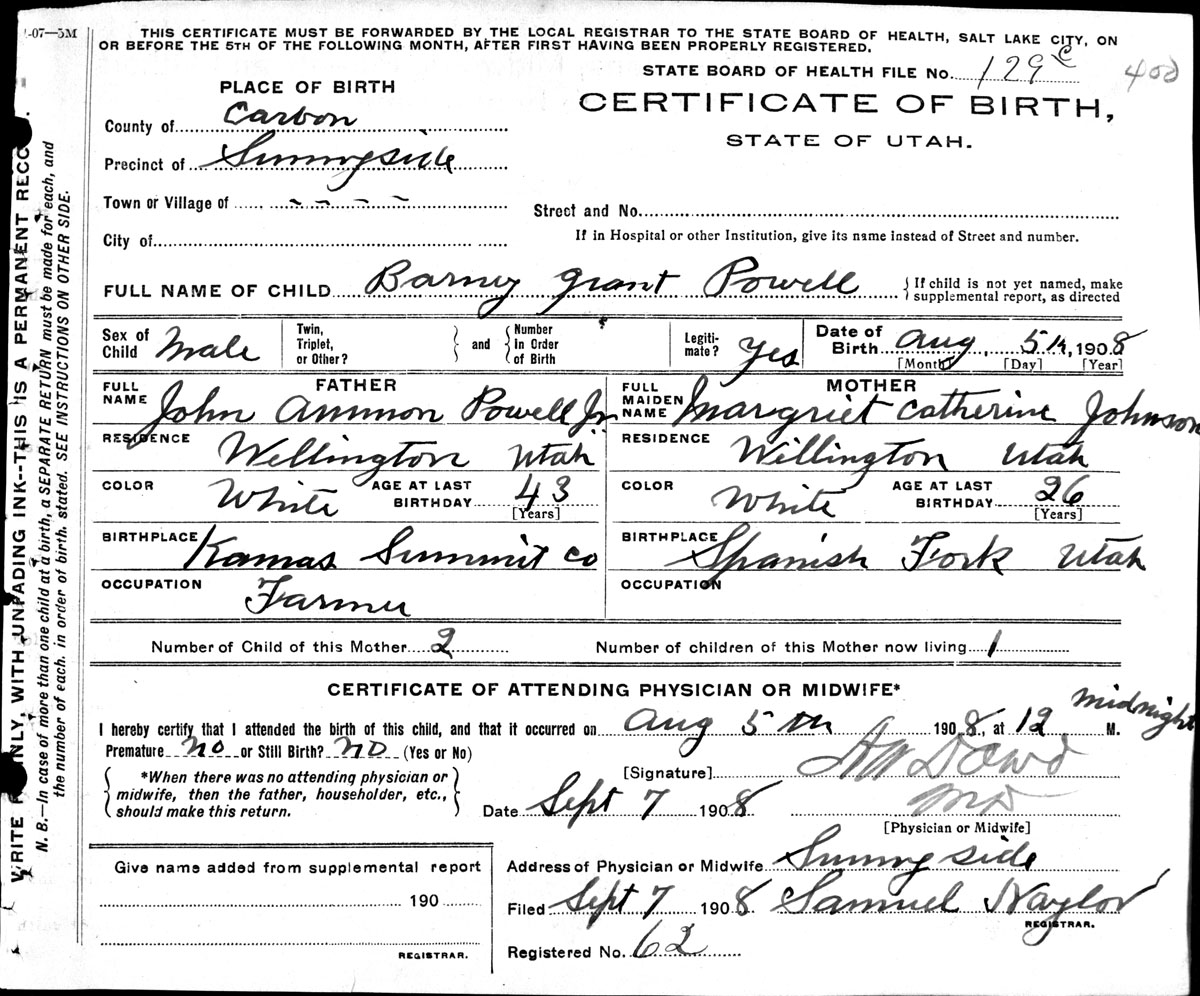 -07—5M
THIS CERTIFICATE MUST BE FORWARDED BY THE LOCAL REGISTRAR TO THE STATE BOARD OF HEALTH, SALT LAKE CITY, ON
OR BEFORE THE 5TH OF THE FOLLOWING MONTH, AFTER FIRST HAVING BEEN PROPERLY REGISTERED.
STATE BOARD OF HEALTH FILE No. 129 c
400
CERTIFICATE OF BIRTH,
STATE OF UTAH.
PLACE OF BIRTH
County of Carbon
Precinct of Sunnyside
Town or Village of - - - -
City of
Street and No.
If in Hospital or other Institution, give its name instead of Street and number.
FULL NAME OF CHILD Barney Grant Powell
If child is not yet named, make
supplemental report, as directed
Sex of Child Male
Twin, Triplet, or Other?
and
Number In Order of Birth
Legiti-mate? Yes
Date of Birth Aug 5th, 1908
[Month] [Day] [Year]
FATHER
FULL NAME John Ammon Powell Jr.
RESIDENCE Wellington Utah
COLOR White
AGE AT LAST BIRTHDAY 43
[Years]
BIRTHPLACE Kamas Summit Co
OCCUPATION Farmer
MOTHER
FULL MAIDEN NAME Margriet Catherine Johnson
RESIDENCE Willington Utah
COLOR White
AGE AT LAST BIRTHDAY 26
[Years]
BIRTHPLACE Spanish Fork Utah
OCCUPATION
Number of Child of this Mother 2
Number of children of this Mother now living 1
CERTIFICATE OF ATTENDING PHYSICIAN OR MIDWIFE*
I hereby certify that I attended the birth of this child, and that it occurred on Aug 5th 1908, at 12 midnight M.
Premature no or Still Birth? no (Yes or No)
*When there was no attending physician or
midwife, then the father, householder, etc.,
should make this return.
[Signature] Dowd
MD
[Physician or Midwife]
Date Sept 7 1908
Address of Physician or Midwife Sunnyside
Filed Sept 7 1908 Samuel Naylor
REGISTRAR.
Registered No. 62
Give name added from supplemental report
190
REGISTRAR.
WRITE ONLY, WITH UNFADING INK--THIS IS A PERMANENT RECO
N. B.—In case of more than one child at a birth, a SEPARATE RETURN must be made for each, and
the number of each. in order of birth. stated. SEE INSTRUCTIONS ON OTHER SIDE.